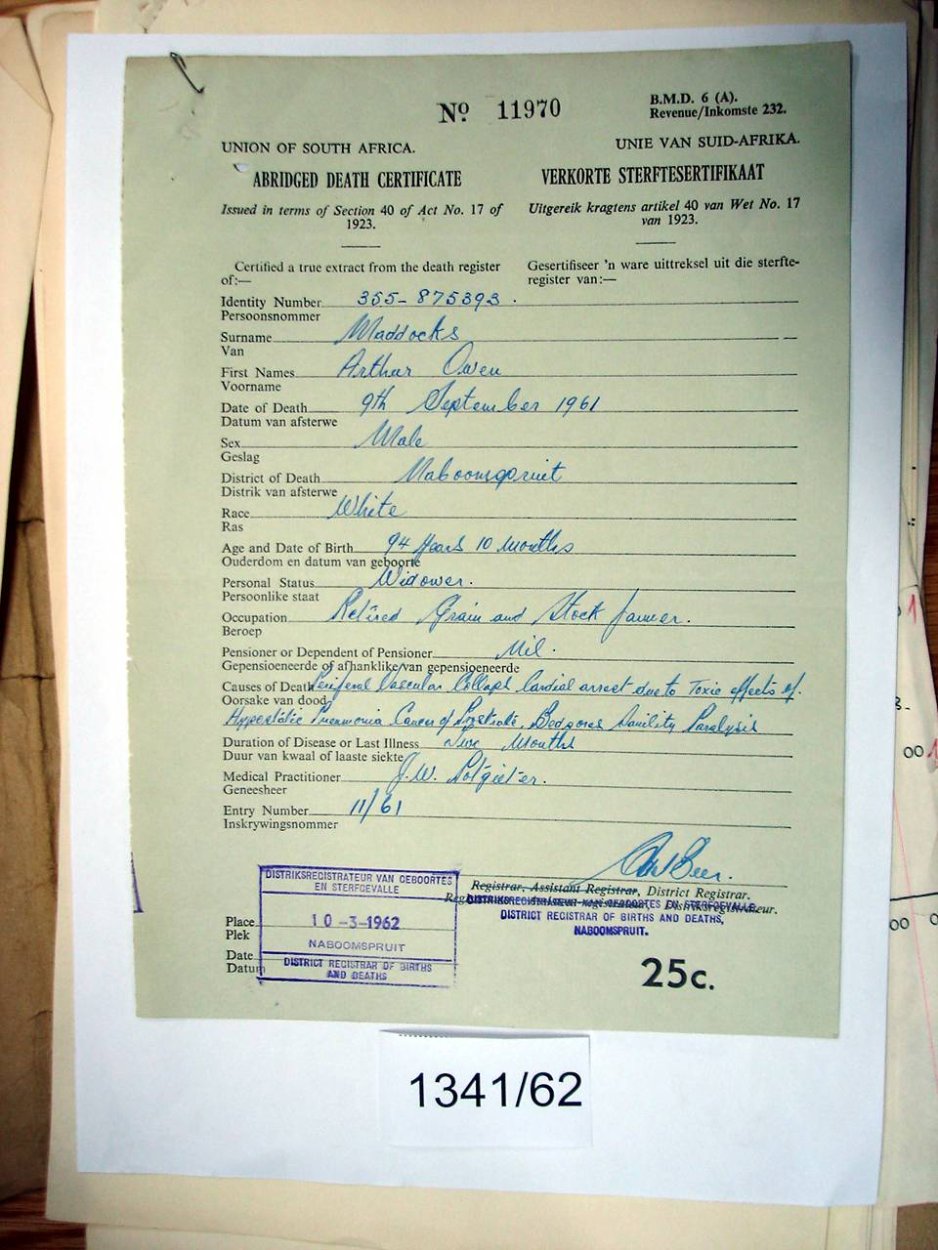 Nº 11970
B.M.D. 6 (A).
Revenue/Inkomste 232.
UNION OF SOUTH AFRICA.
UNIE VAN SUID-AFRIKA.
ABRIDGED DEATH CERTIFICATE
VERKORTE STERFTESERTIFIKAAT
Issued in terms of Section 40 of Act No. 17 of
1923.
Uitgereik kragtens artikel 40 van Wet No. 17
van 1923.
Certified a true extract from the death register
of:—
Gesertifiseer 'n ware uittreksel uit die sterfte-
register van:—
Identity Number 355-875393.
Persoonsnommer
Surname Maddocks
Van
First Names Arthur Owen
Voorname
Date of Death 9th September 1961
Datum van afsterwe
Sex Male
Geslag
District of Death Naboomspruit
Distrik van afsterwe
Race White
Ras
Age and Date of Birth 94 Years 10 Months
Ouderdom en datum van geboorte
Personal Status Widower.
Persoonlike staat
Occupation Retired Grain and Stock farmer.
Beroep
Pensioner or Dependent of Pensioner Nil.
Gepensioeneerde of afhanklike van gepensioeneerde
Causes of Death Vascular Collaps Cardial arrest due to Toxic effects of
Oorsake van dood
Hyperstatic Pneumonia Cancer of Prostrate, Bedsores Sinility Paralysis
Duration of Disease or Last Illness Months
Duur van kwaal of laaste siekte
Medical Practitioner J.W. Potgieter.
Geneesheer
Entry Number 11/61
Inskrywingsnommer
Registrar, Assistant Registrar, District Registrar.
Distriksregistrateur.
DISTRIKSREGISTRATEUR VAN GEBOORTES EN STERFGEVALLE,
DISTRICT REGISTRAR OF BIRTHS AND DEATHS,
NABOOMSPRUIT.
DISTRIKSREGISTRATEUR VAN GEBOORTES
EN STERFGEVALLE
Place
Plek
10-3-1962
NABOOMSPRUIT
Date
Datum
DISTRICT REGISTRAR OF BIRTHS
AND DEATHS
25c.
1341/62